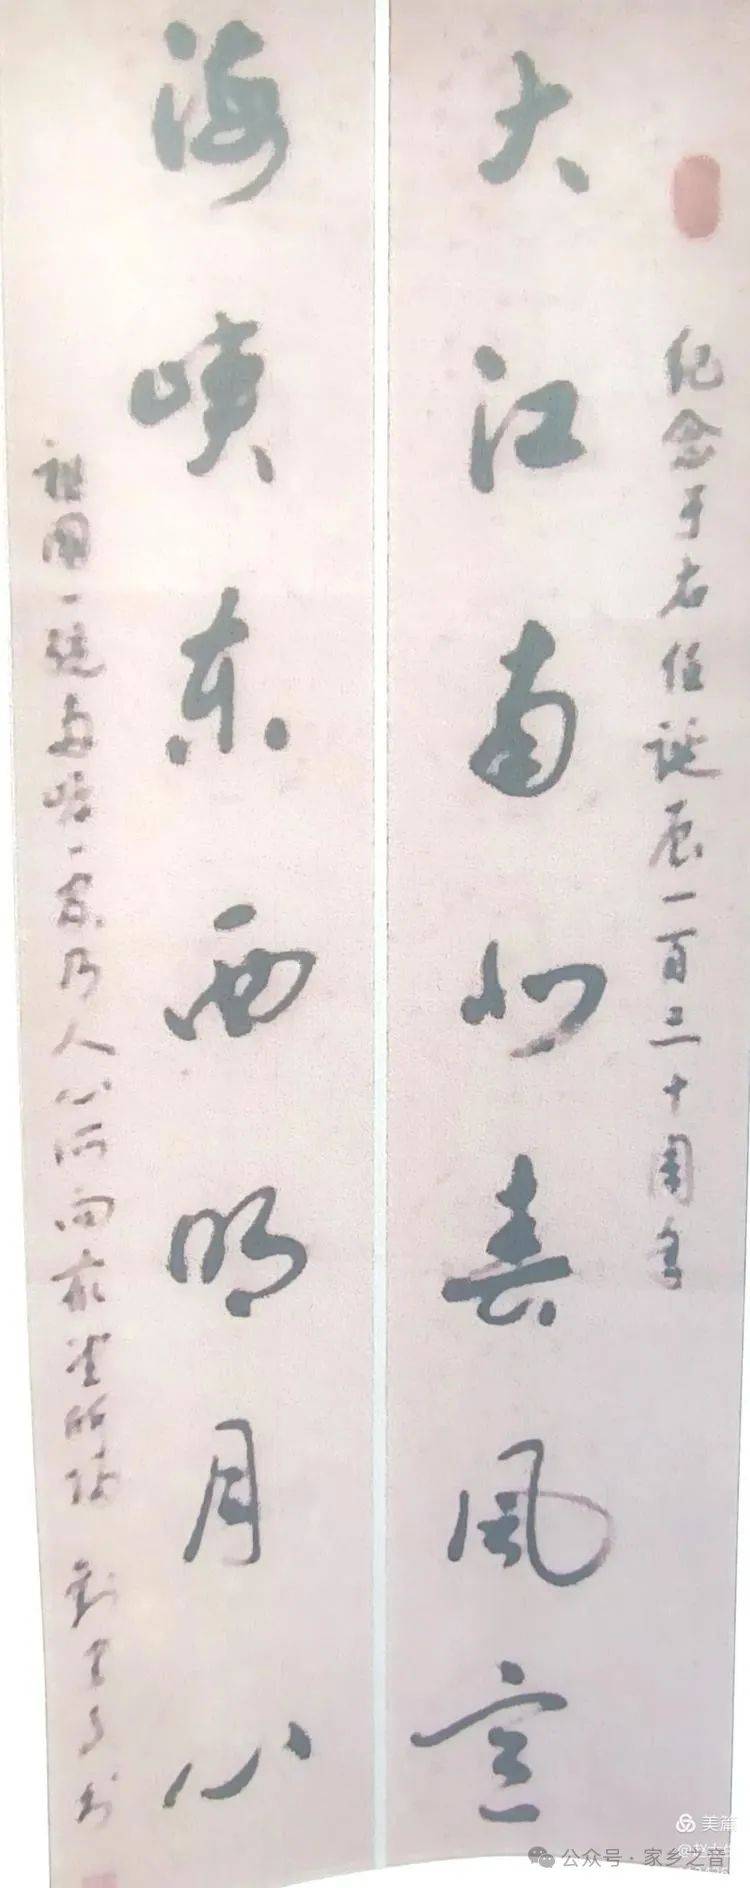 纪念于右任诞辰一百三十周年
大江南北春風
海峽东西明月心
祖国一统两岸一家乃人心所向众望所归 刘书
美篇
公众号·家乡之音